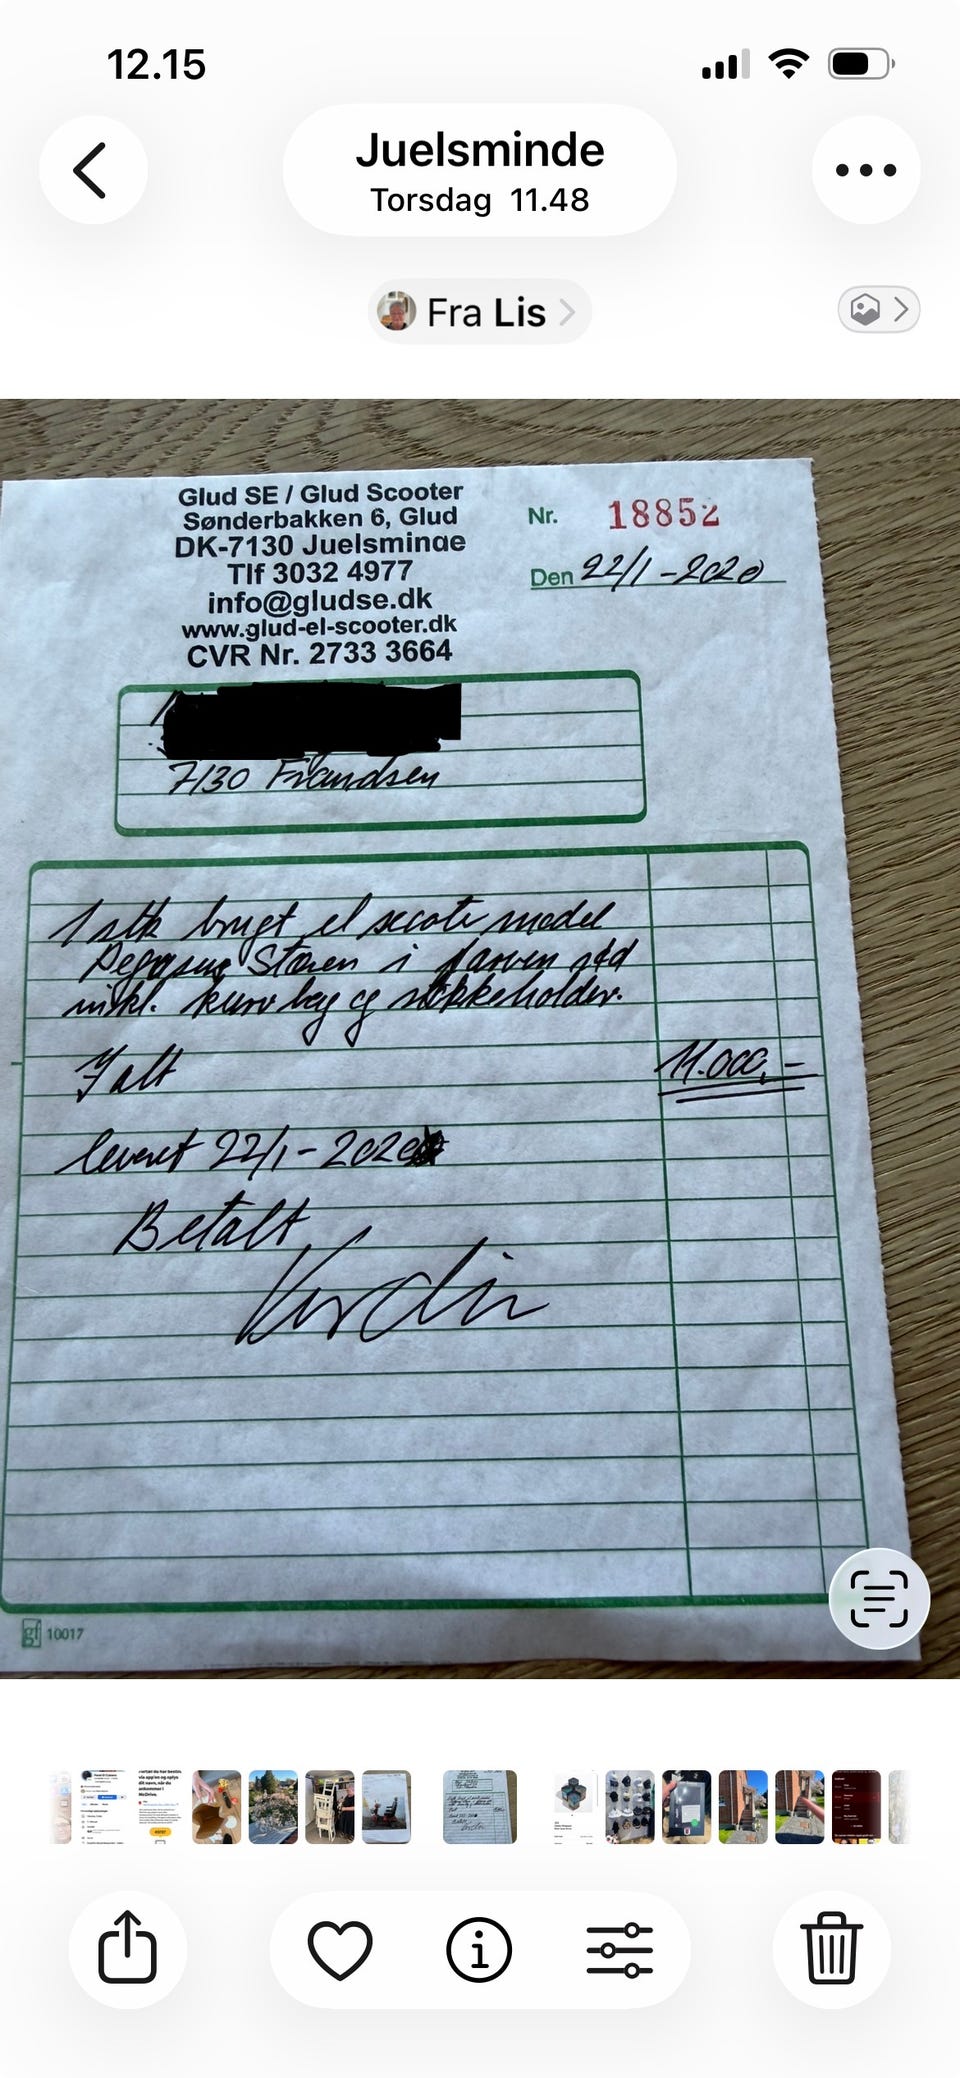 12.15
Juelsminde
Torsdag 11.48
Fra Lis
Glud SE / Glud Scooter
Sønderbakken 6, Glud
DK-7130 Juelsminde
Tlf 3032 4977
info@gludse.dk
www.glud-el-scooter.dk
CVR Nr. 2733 3664
Nr. 18852
Den 22/1-2020
7130
1 stk brugt el scoote model
Pegasus Støren i farven rød
inkl. kurv bag og stokkeholder.
I alt 11.000,-
leveret 22/1-2020
Betalt
gf 10017